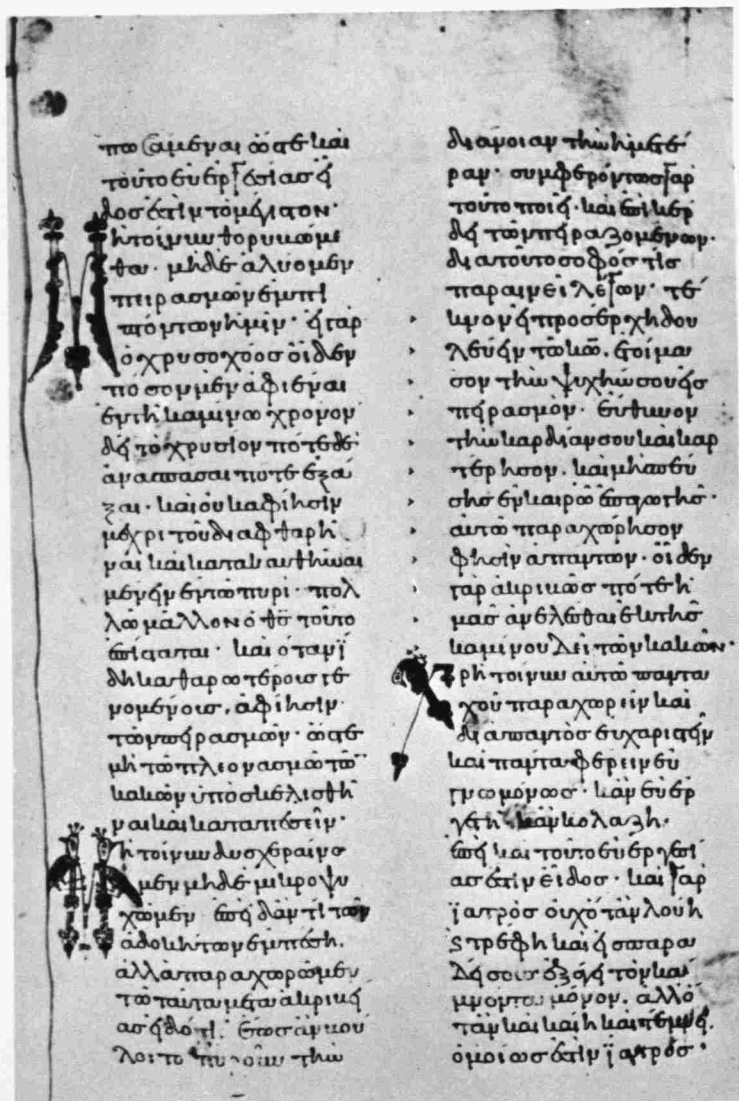 πωσάμεναι ὥστε καὶ
τοῦτο εὐεργεσίας εἶ
δος ἐστὶν τὸ μέγιστον·
Μὴ τοίνυν θορυβώμε
θα· μηδὲ ἀλύομεν
πειρασμῶν ἐμπι
πτόντων ἡμῖν· εἰ γὰρ
ὁ χρυσοχόος οἶδεν
πόσον μὲν ἀφιέναι
ἐν τῇ καμίνω χρόνον
δεῖ τὸ χρυσίον πότε δὲ
ἀνασπάσαι ποτὲ ἐξά
ξαι· καὶ οὐκ ἀφίησιν
μέχρι τοῦ διαφθαρῆ
ναι καὶ κατακαυθῆναι
μένειν ἐν τῶ πυρί· πολ
λῶ μᾶλλον ὁ θς τοῦτο
ἐπίσταται· καὶ ὅταν ἴ
δη καθαρωτέροις γε
νομένοις, ἀφίησιν
τῶν πειρασμῶν· ὥστε
μὴ τῶ πλεονασμῶ τῶ
κακῶν ὑποσκελισθῆ
ναι καὶ καταπεσεῖν·
Μὴ τοίνυν δυσχεραίνω
μεν μηδὲ μικροψυ
χῶμεν ἐπειδάν τι τῶν
ἀδοκήτων ἐμπέση.
ἀλλὰ παραχωρῶμεν
τῶ ταῦτα μετὰ ἀκριβεί
ας εἰδότι. ἕως ἂν βού
λοιτο πυροῦν τὴν
διάνοιαν τὴν ἡμετέ
ραν· συμφερόντως γὰρ
τοῦτο ποιεῖ· καὶ ἐπὶ κέρ
δει τῶν πειραζομένων·
διὰ τοῦτο σοφός τις
παραινεῖ λέγων· τέ
κνον εἰ προσέρχη δου
λεύειν τῶ κω. ἑτοίμα
σον τὴν ψυχήν σου εἰς
πειρασμόν· εὔθυνον
τὴν καρδίαν σου καὶ καρ
τέρησον. καὶ μὴ σπεύ
σης ἐν καιρῶ ἐπαγωγῆς·
αὐτῶ παραχώρησον
φησὶν ἁπάντων· οἶδεν
γὰρ ἀκριβῶς πότε ἡ
μᾶς ἀνελέσθαι ἐκ τῆς
καμίνου δεῖ τῶν κακῶν·
Χρὴ τοίνυν αὐτῶ παντα
χοῦ παραχωρεῖν καὶ
διαπαντὸς εὐχαριστεῖν
καὶ πάντα φέρειν εὐ
γνωμόνως· κἂν εὐερ
γετῆ κἂν κολάζη·
ἐπεὶ καὶ τοῦτο εὐεργεσί
ας ἐστὶν εἶδος· καὶ γὰρ
ἰατρὸς οὐχ ὅταν λούη
τρέφη καὶ εἰς παρα
δείσους ἐξάγει τὸν κά
μνοντα μόνον. ἀλλ ὅ
ταν καὶ καίη καὶ τέμνει.
ὁμοίως ἐστὶν ἰατρός·